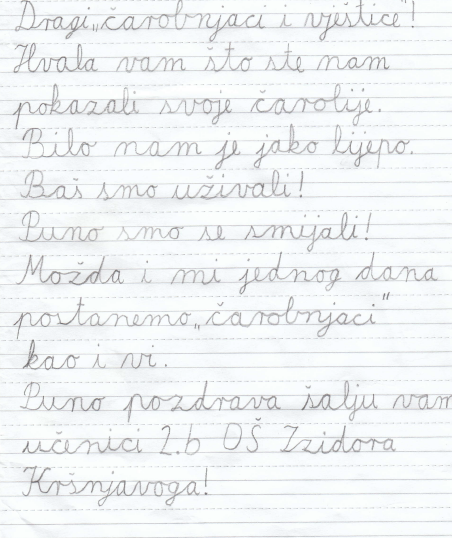 Dragi „čarobnjaci i vještice"!
Hvala vam što ste nam
pokazali svoje čarolije.
Bilo nam je jako lijepo.
Baš smo uživali!
Puno smo se smijali!
Možda i mi jednog dana
postanemo „čarobnjaci"
kao i vi.
Puno pozdrava šalju vam
učenici 2.b OŠ Izidora
Kršnjavoga!